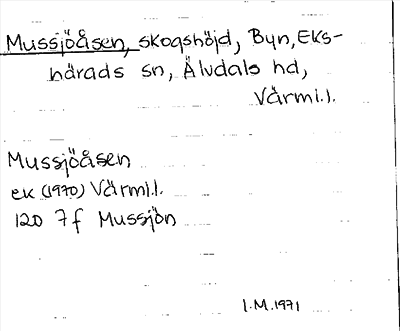 Mussjöåsen, skogshöjd, Byn, Eks-
härads sn, Älvdals hd,
Värml.l.
Mussjöåsen
ek (1970) Värml.l.
120 7f Mussjön
I.M.1971